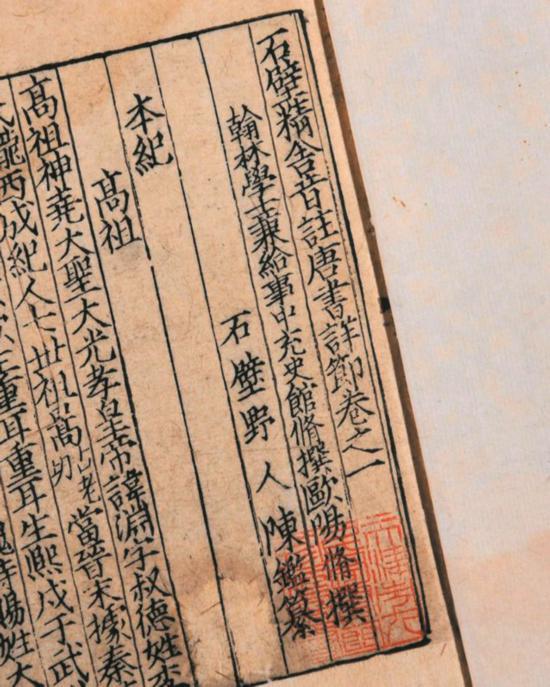 石壁精舍音註唐書詳節卷之一
翰林學士兼給事中充史館脩撰歐陽脩撰
石壁野人陳鑑纂
本紀
高祖
高祖神堯大聖大光孝皇帝諱淵字叔德姓李
氏隴西成紀人七世祖暠古老切當晉末據秦
重耳重耳生熙戍于武
賜姓大